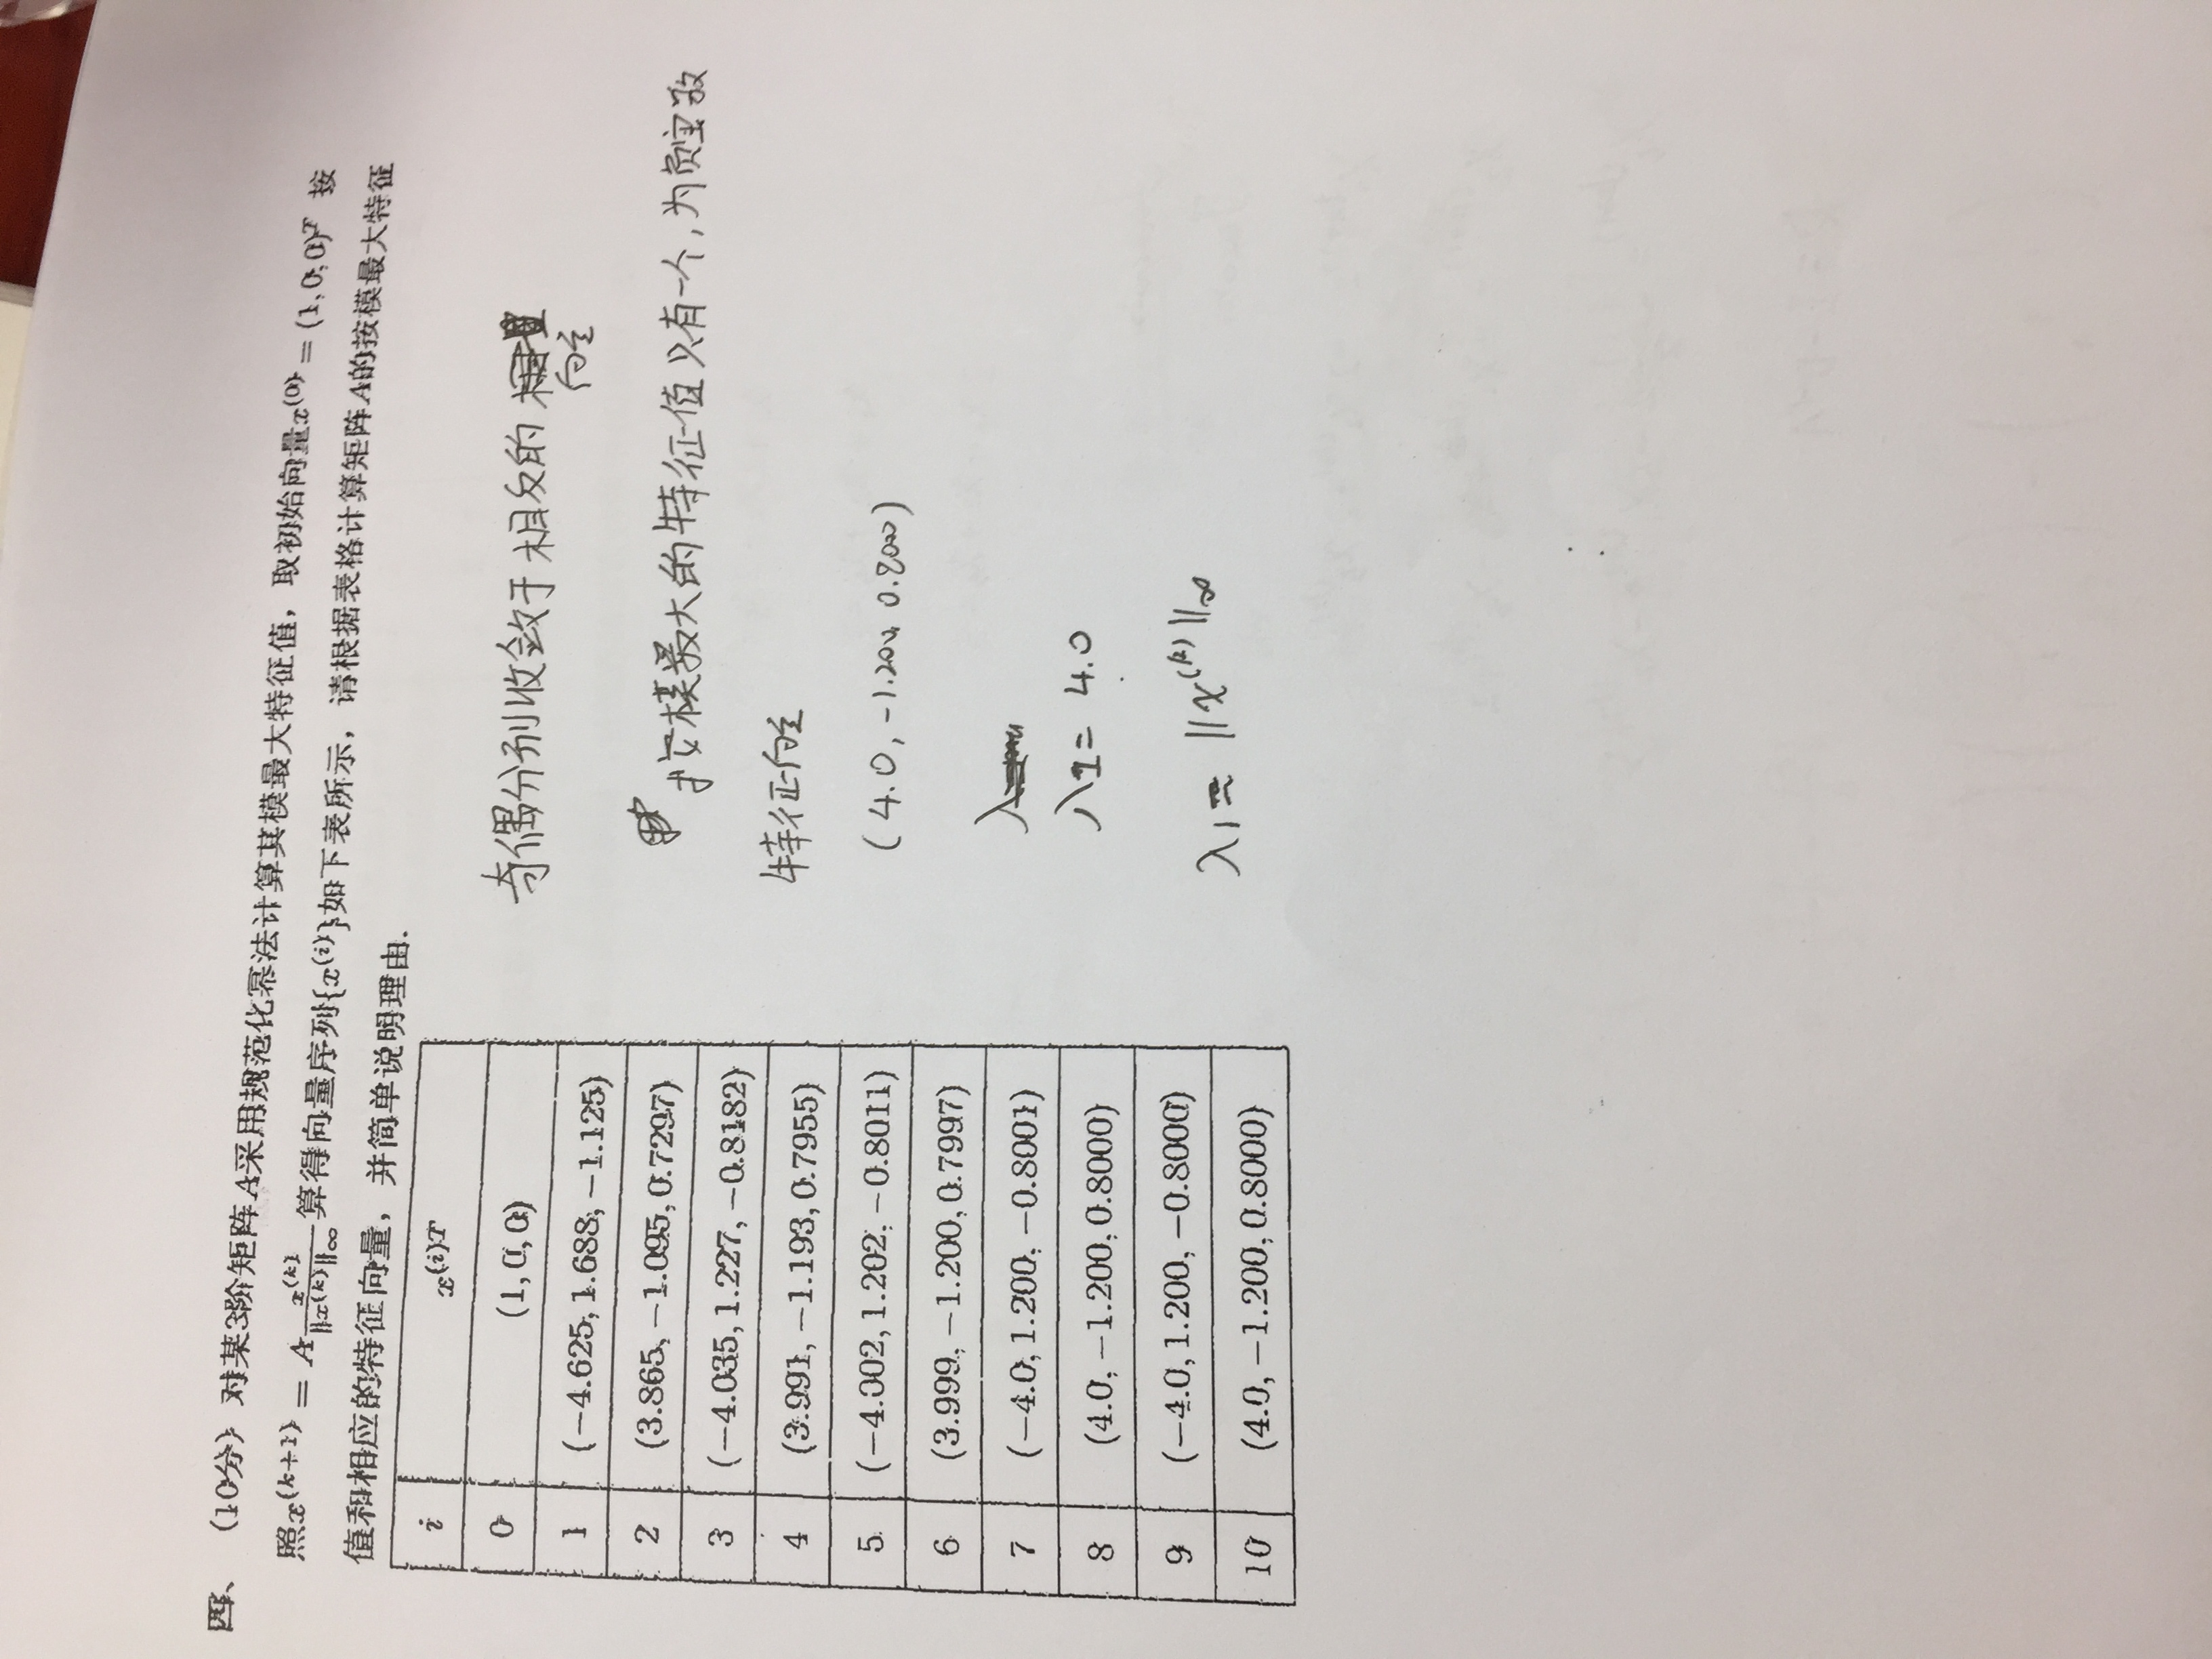 四、（10分）对某3阶矩阵A采用规范化幂法计算其模最大特征值，取初始向量x^(0) = (1,0,0)^T 按
照x^(k+1) = A x^(k)/‖x^(k)‖∞ 算得向量序列{x^(i)}如下表所示，请根据表格计算矩阵A的按模最大特征
值和相应的特征向量，并简单说明理由.
i x^(i)T
0 (1, 0, 0)
1 (−4.625, 1.688, −1.125)
2 (3.865, −1.095, 0.7297)
3 (−4.035, 1.227, −0.8182)
4 (3.991, −1.193, 0.7955)
5 (−4.002, 1.202, −0.8011)
6 (3.999, −1.200, 0.7997)
7 (−4.0, 1.200, −0.8001)
8 (4.0, −1.200, 0.8000)
9 (−4.0, 1.200, −0.8000)
10 (4.0, −1.200, 0.8000)
奇偶分别收敛于相反的
向量
按模最大的特征值只有一个，为负实数
特征向量
(4.0, -1.200, 0.8000)
λ
λ1= 4.0
λ1 = ‖x^(k)‖∞